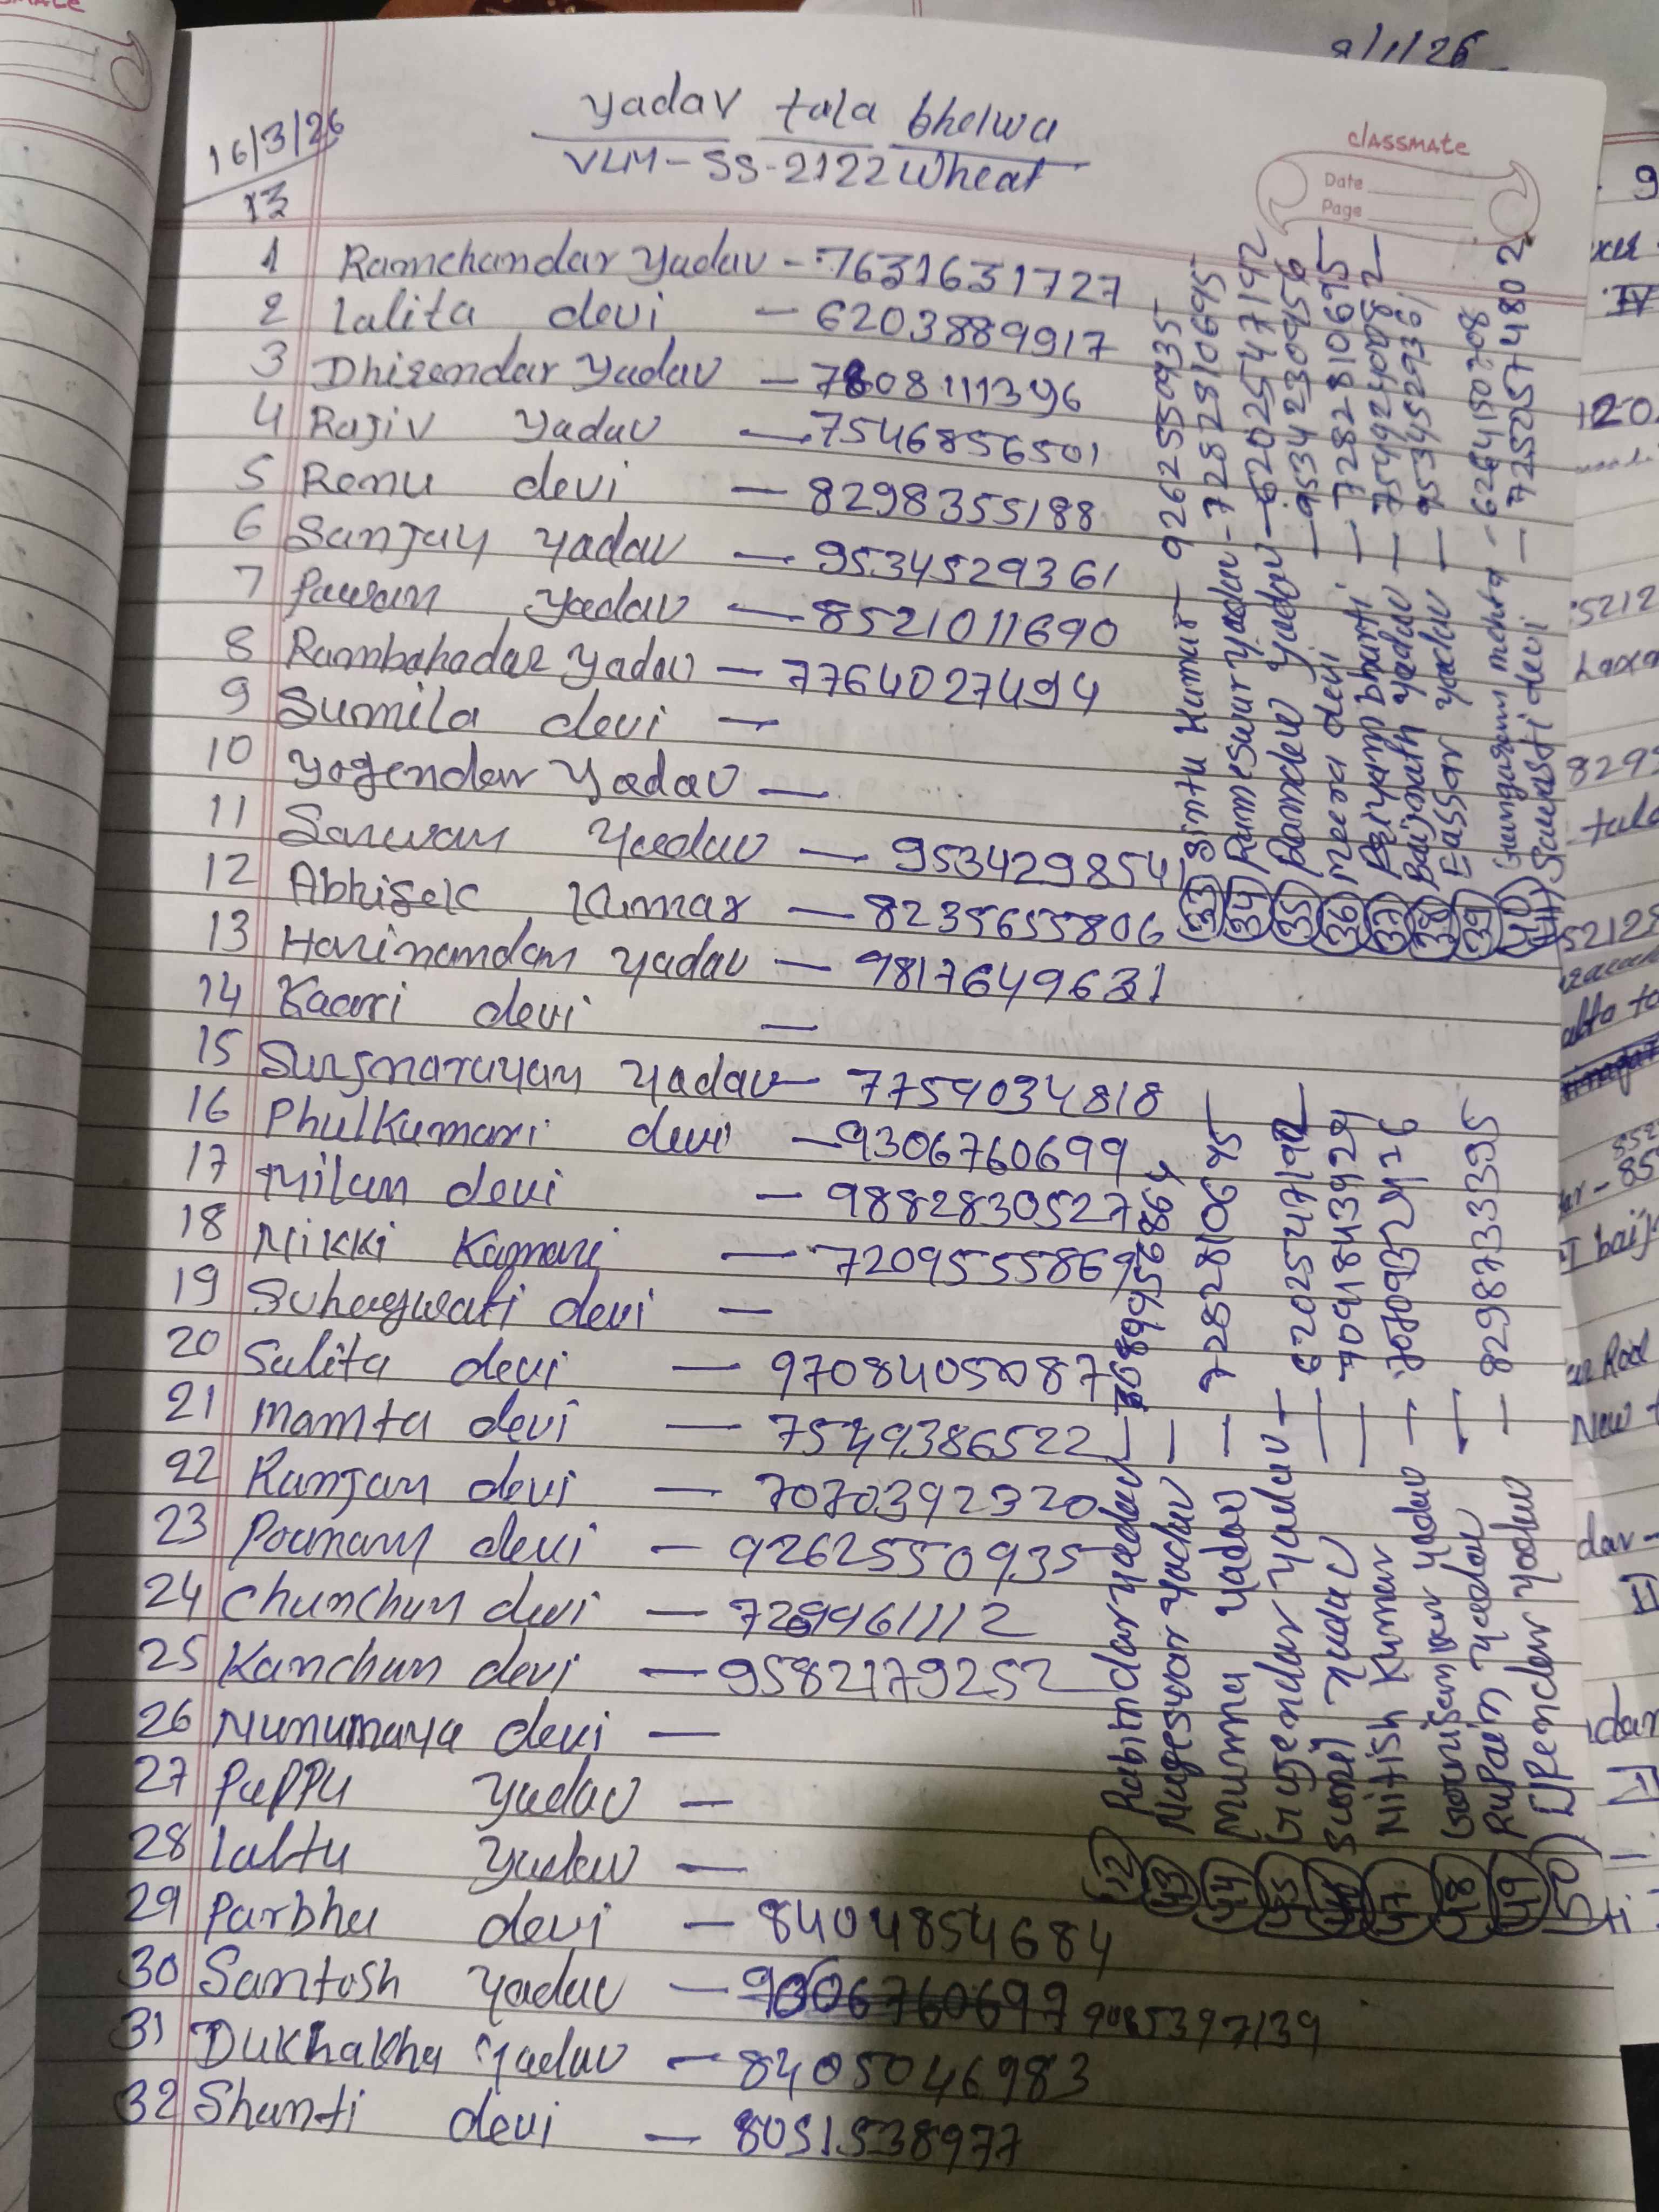 16/3/26
13
yadav tola bhelwa
VLM-SS-2122 Wheat
classmate
Date
Page
1 Ramchandar yadav - 7631631727
2 lalita devi - 6203889917
3 Dhirendar yadav - 7808111396
4 Rajiv yadav - 7546856501
5 Renu devi - 8298355188
6 Sanjay yadav - 9534529361
7 Pawan yadav - 8521011690
8 Rambahadar yadav - 7764027494
9 Sumila devi -
10 yogendar yadav -
11 Sarwan yadav - 9534298541
12 Abhisek Kumar - 8235655806
13 Harinandan yadav - 9817649631
14 Kaari devi -
15 Surjnarayan yadav - 7759034818
16 Phulkumari devi - 9306760699
17 Milan devi - 9882830527
18 Nikki Kumari - 7209555869
19 Suhagwati devi -
20 Salita devi - 9708405087
21 mamta devi - 7549386522
22 Ranjan devi - 7070392320
23 Poonam devi - 9262550935
24 Chunchun devi - 7269961112
25 Kanchan devi - 9582179252
26 Nunumaya devi -
27 Pappu yadav -
28 laltu yadav -
29 Parbha devi - 8404854684
30 Santosh yadav - 9085397139
31 Dukhakha yadav - 8405046983
32 Shanti devi - 8051538977
33 Sintu Kumar - 9262550935
34 Rameswar yadav - 7282810695
35 Ramdew yadav - 6202547192
36 meera devi - 9534230956
37 Priyam bharti - 7282810695
38 Baijnath yadav - 7549240082
39 Eassar yadav - 9534529361
40 Gangaram mehta - 6264150208
41 Sawasti devi - 7250574802
42 Rabindar yadav -
43 Nageswar yadav -
44 munna yadav - 7282810695
45 Gajendar yadav -
46 Sunil yadav - 6202547192
47 Nitish Kumar - 7091843929
48 yadav -
49 Rupain yadav -
50 Upendar yadav - 8298733395